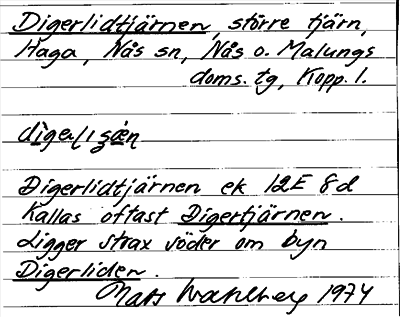 Digerlidtjärnen, större tjärn,
Haga, Nås sn, Nås o. Malungs
doms. tg, Kopp. l.
Digerlidtjärnen ek 12E 8d
Kallas oftast Digertjärnen.
Ligger strax söder om byn
Digerliden.
Mats Wahlberg 1974